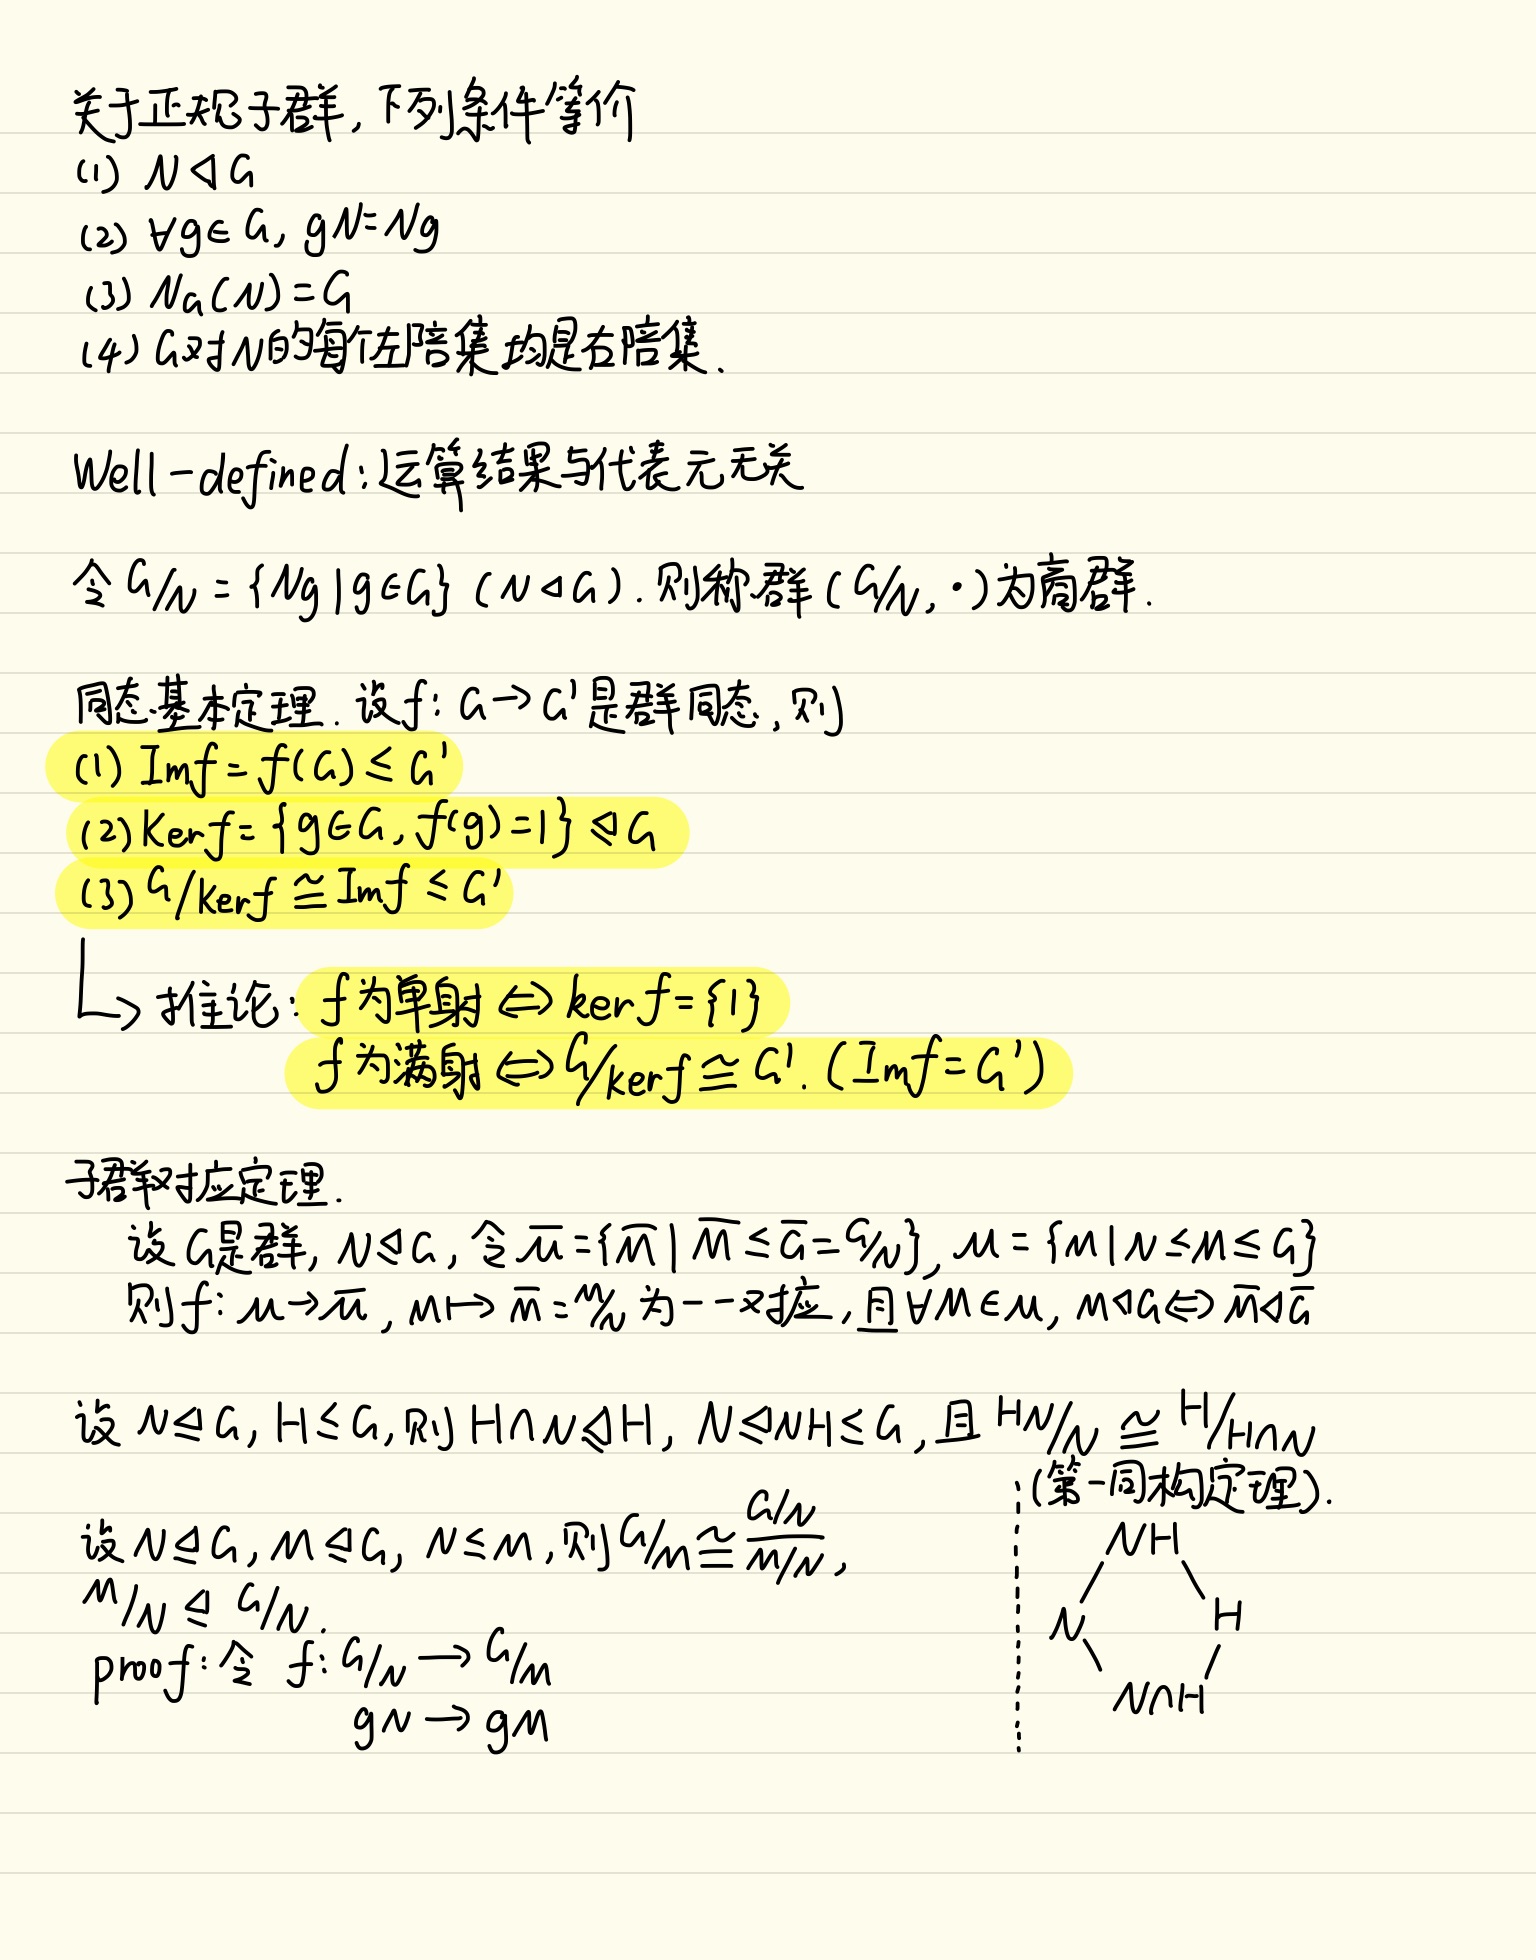 关于正规子群,下列条件等价
(1) N◁G
(2) ∀g∈G, gN=Ng
(3) N_G(N)=G
(4) G对N的每个左陪集均是右陪集.
Well-defined:运算结果与代表元无关
令 G/N = {Ng|g∈G} (N◁G). 则称群 (G/N, ·)为商群.
同态基本定理. 设f: G→G'是群同态,则
(1) Imf = f(G) ≤ G'
(2) Kerf = {g∈G, f(g)=1} ⊴ G
(3) G/kerf ≅ Imf ≤ G'
推论: f为单射 ⇔ kerf={1}
f为满射 ⇔ G/kerf ≅ G'. (Imf=G')
子群对应定理.
设G是群, N⊴G, 令 μ̅={M̅ | M̅≤G̅=G/N}, μ={M|N≤M≤G}
则f: μ→μ̅, M↦M̅=M/N 为一一对应,且∀M∈μ, M◁G⇔M̅◁G̅
设 N⊴G, H≤G,则 H∩N⊴H, N⊴NH≤G,且 HN/N ≅ H/H∩N
(第一同构定理).
设N⊴G, M⊴G, N≤M,则G/M ≅ (G/N)/(M/N),
M/N ⊴ G/N.
proof:令 f: G/N → G/M
gN → gM
NH
N H
N∩H